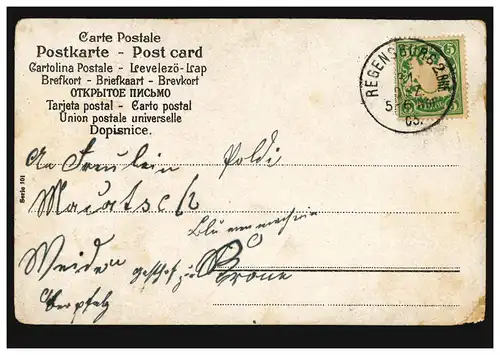 Carte Postale
Postkarte - Post card
Cartolina Postale - Levelező-Lap
Brefkort - Briefkaart - Brevkort
ОТКРЫТОЕ ПИСЬМО
Tarjeta postal - Carto postal
Union postale universelle
Dopisnice.
REGENSBURG 2.
03.
5
5
Serie 101
An Fräulein Poldi
Weiden gasthof zur Krone
Oberpfalz